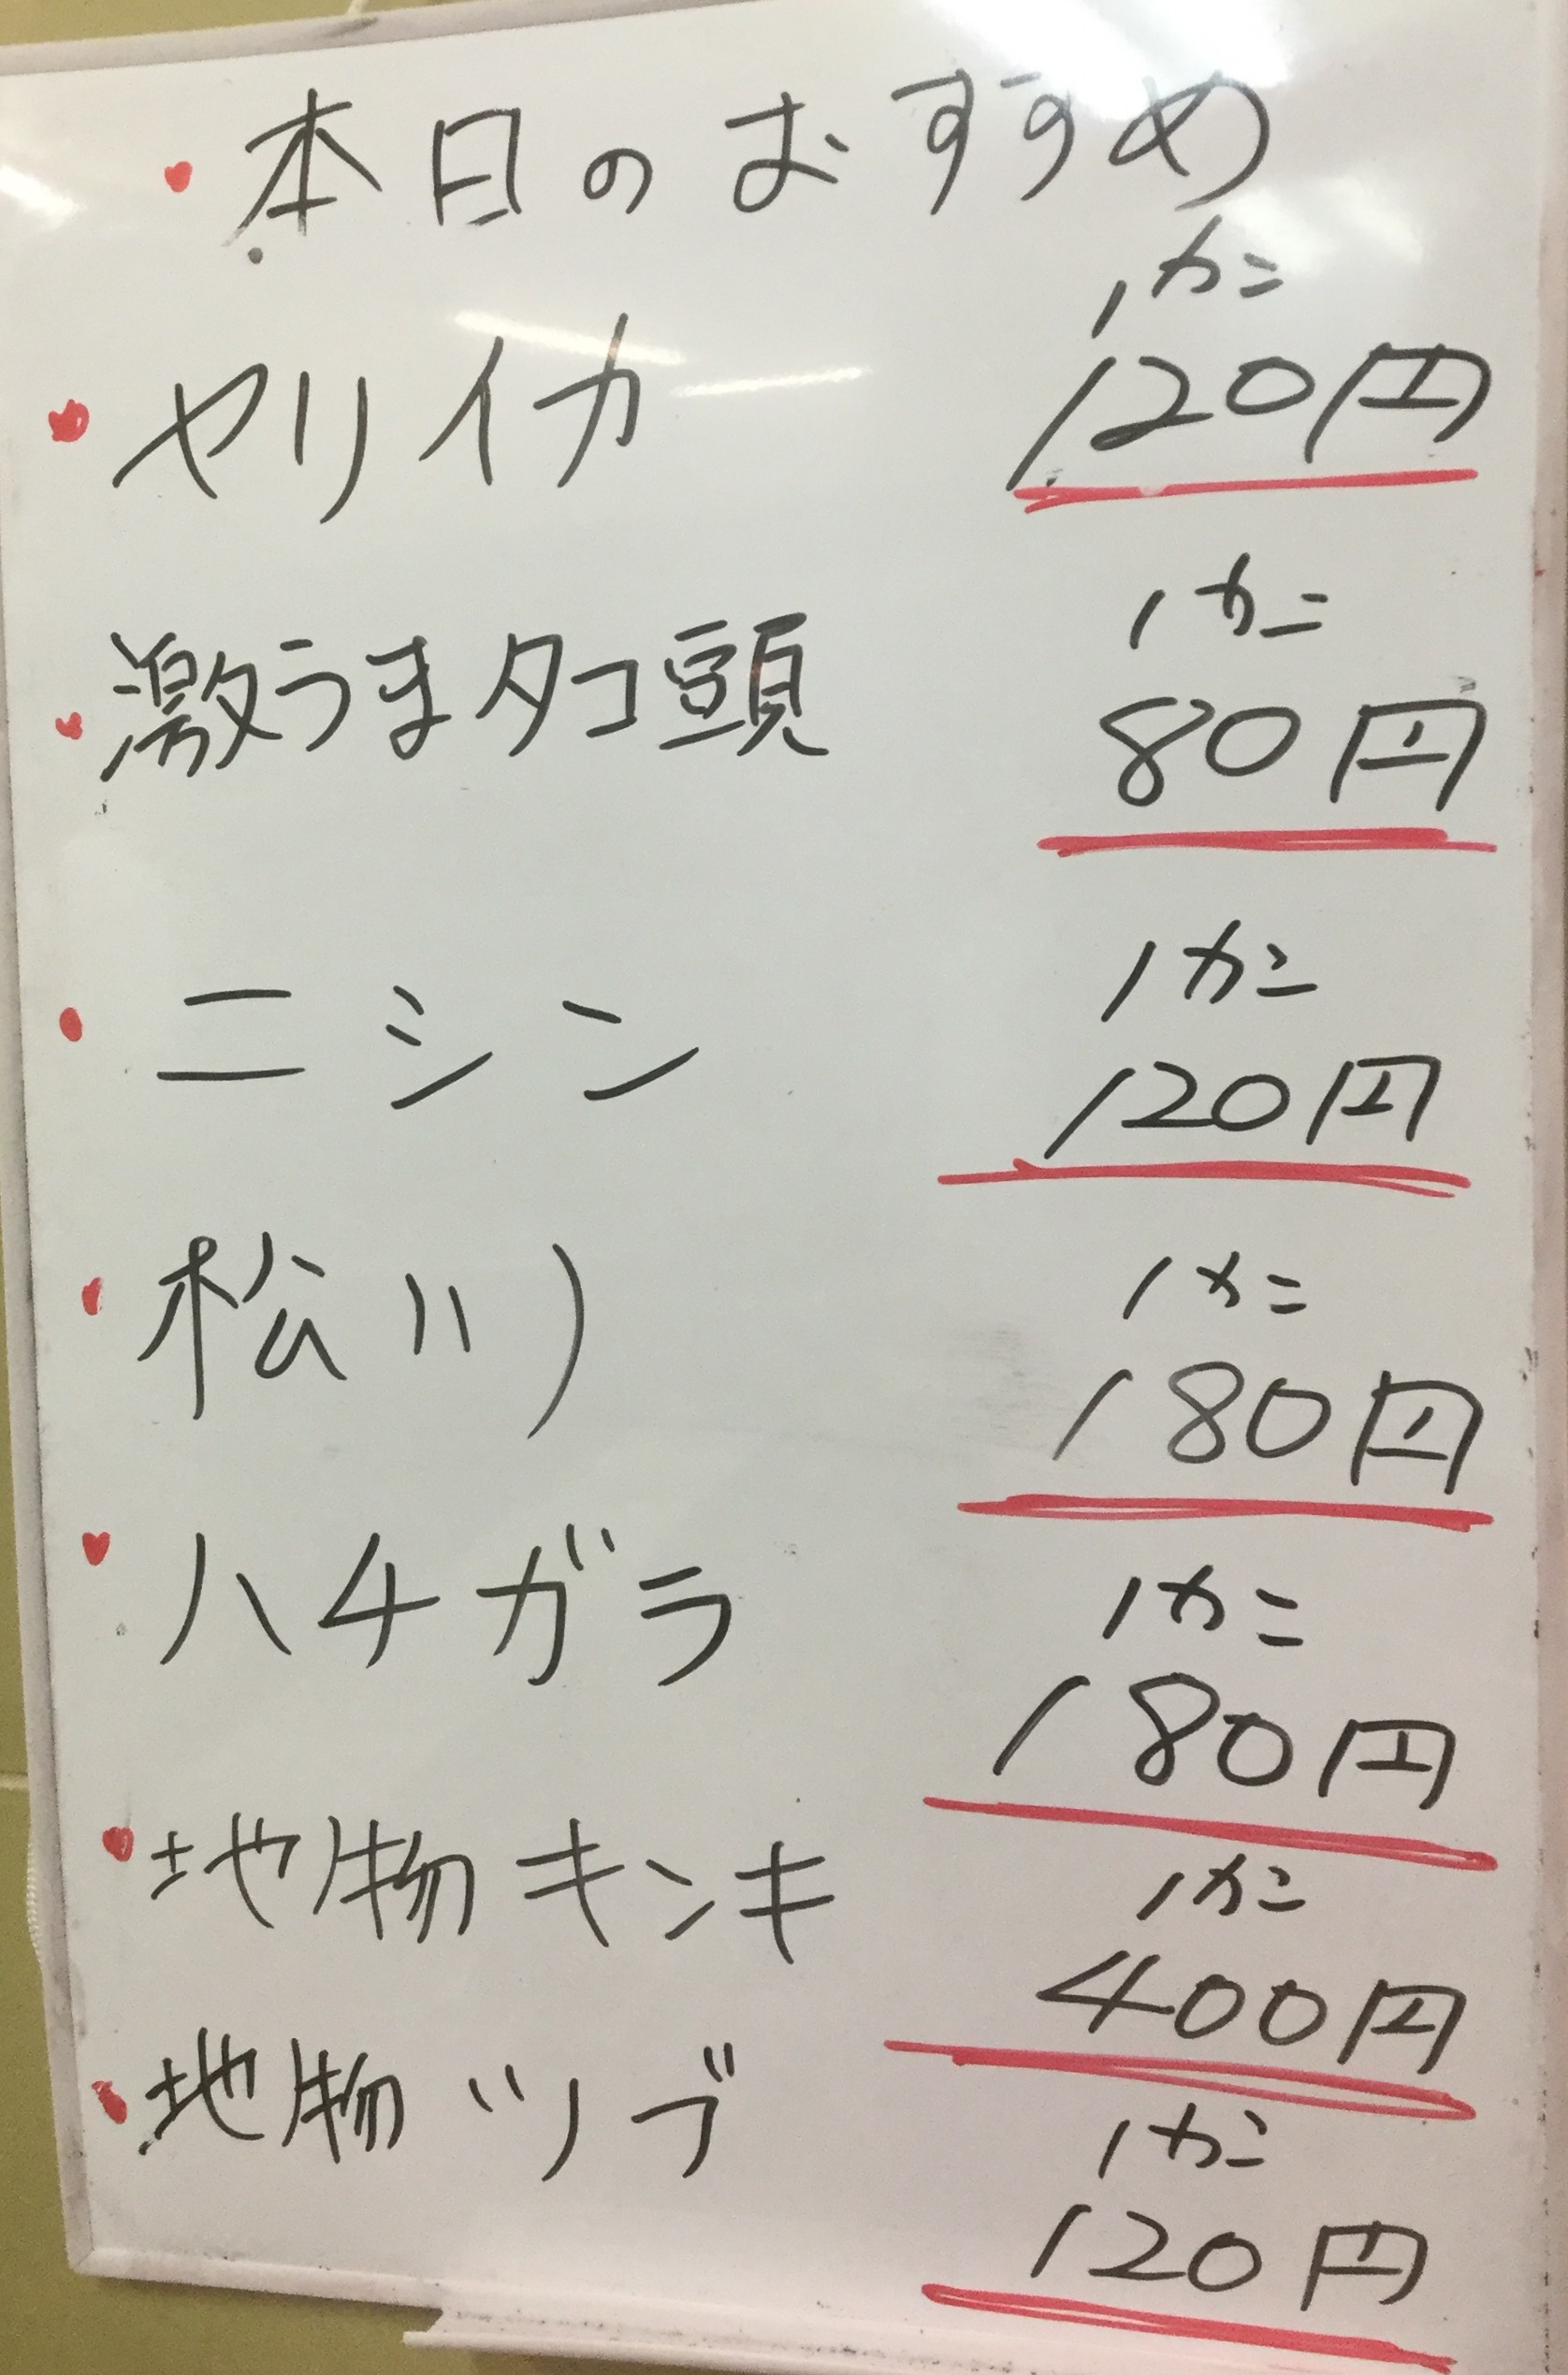 本日のおすすめ
1カニ
ヤリイカ 120円
1カニ
激うまタコ頭 80円
1カニ
ニシン 120円
1カニ
松川 180円
1カニ
ハチガラ 180円
1カニ
地物キンキ 400円
1カニ
地物ツブ 120円